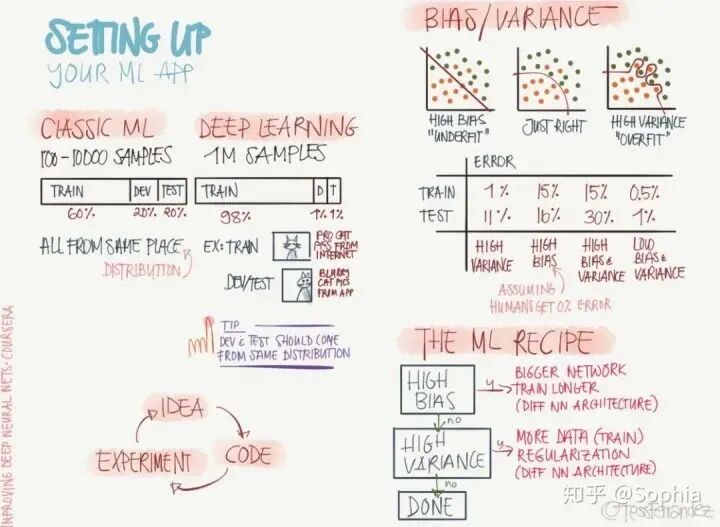 SETTING UP
YOUR ML APP
CLASSIC ML
100-10000 SAMPLES
TRAIN DEV TEST
60% 20% 20%
ALL FROM SAME PLACE
DISTRIBUTION
DEEP LEARNING
1M SAMPLES
TRAIN D T
98% 1% 1%
EX: TRAIN
PRO CAT
PICS FROM
INTERNET
DEV/TEST
BLURRY
CAT PICS
FROM APP
TIP
DEV & TEST SHOULD COME
FROM SAME DISTRIBUTION
IDEA
CODE
EXPERIMENT
BIAS/VARIANCE
HIGH BIAS
"UNDERFIT"
JUST RIGHT
HIGH VARIANCE
"OVERFIT"
ERROR
TRAIN 1% 15% 15% 0.5%
TEST 11% 16% 30% 1%
HIGH
VARIANCE
HIGH
BIAS
HIGH
BIAS &
VARIANCE
LOW
BIAS &
VARIANCE
ASSUMING
HUMANS GET 0% ERROR
THE ML RECIPE
HIGH
BIAS
Y
BIGGER NETWORK
TRAIN LONGER
(DIFF NN ARCHITECTURE)
no
HIGH
VARIANCE
Y
MORE DATA (TRAIN)
REGULARIZATION
(DIFF NN ARCHITECTURE)
no
DONE
IMPROVING DEEP NEURAL NETS · COURSERA
知乎 @Sophia
@TessFerrandez